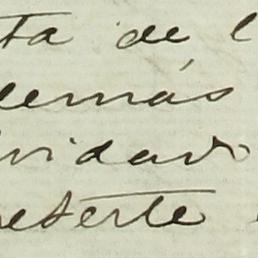 ta de l
demás
lvidar
meterte